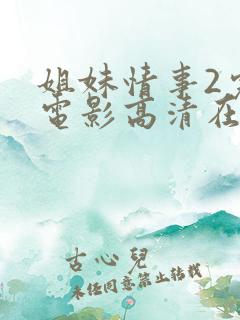 姐妹情事2
電影高清在
古心兒
未經同意禁止轉載